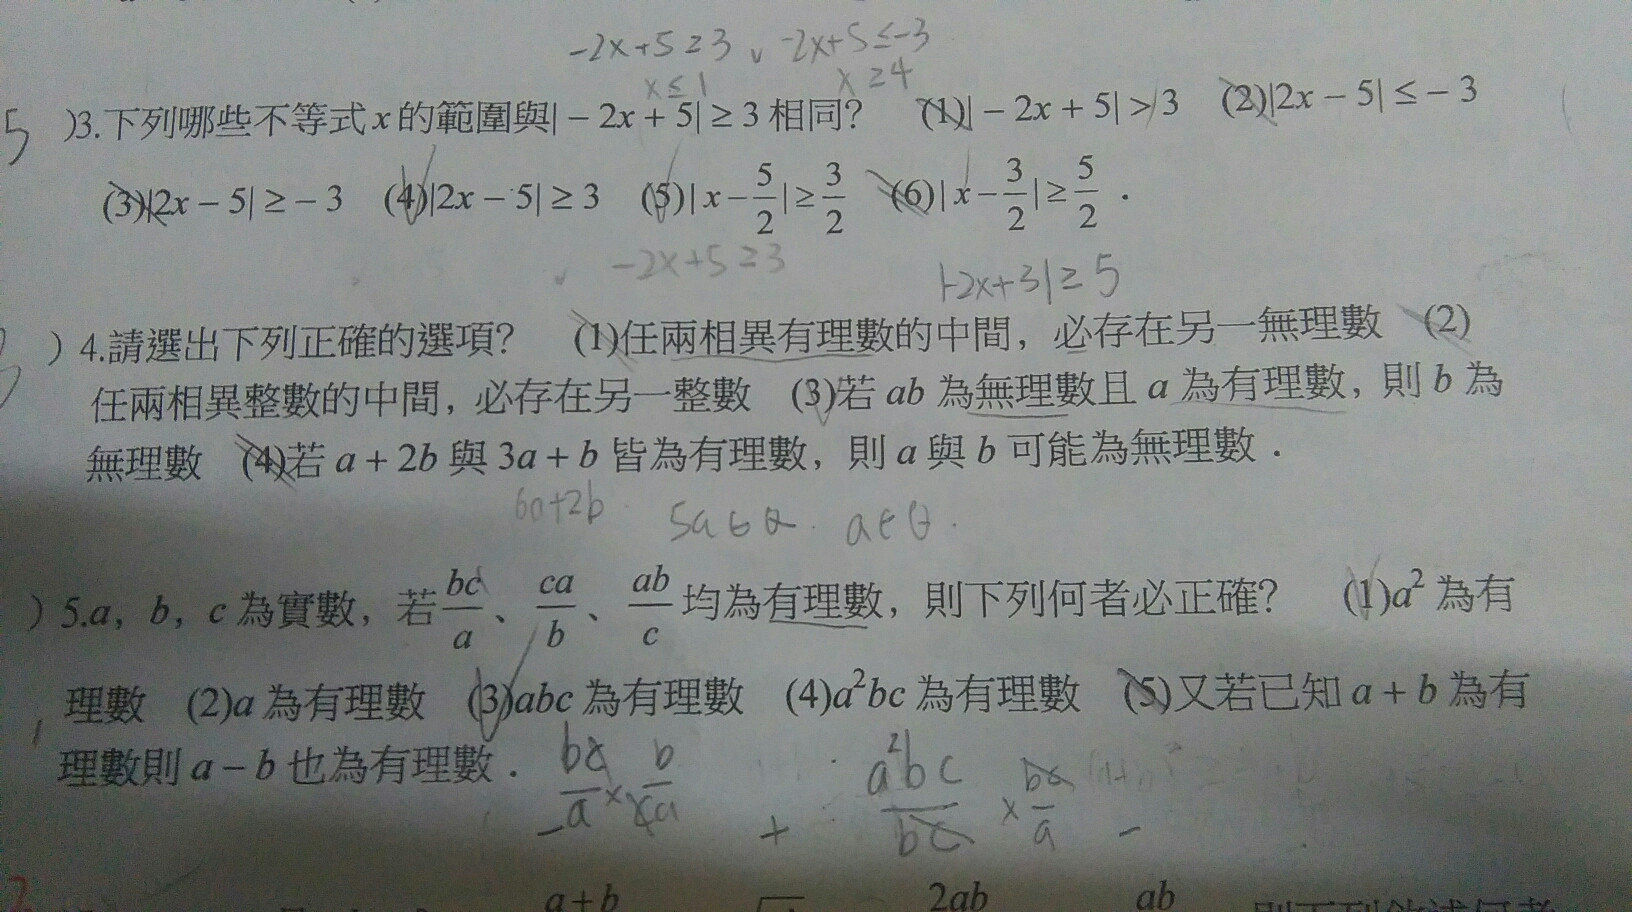 -2x+5≥3 ∨ -2x+5≤-3
x≤1 x≥4
5 )3.下列哪些不等式x的範圍與|-2x+5|≥3相同? (1)|-2x+5|>3 (2)|2x-5|≤-3
(3)|2x-5|≥-3 (4)|2x-5|≥3 (5)|x-5/2|≥3/2 (6)|x-3/2|≥5/2.
-2x+5≥3 |-2x+3|≥5
)4.請選出下列正確的選項? (1)任兩相異有理數的中間,必存在另一無理數 (2)
任兩相異整數的中間,必存在另一整數 (3)若ab為無理數且a為有理數,則b為
無理數 (4)若a+2b與3a+b皆為有理數,則a與b可能為無理數.
6a+2b 5a∈Q. a∈Q.
)5.a,b,c為實數,若bc/a、ca/b、ab/c均為有理數,則下列何者必正確? (1)a²為有
理數 (2)a為有理數 (3)abc為有理數 (4)a²bc為有理數 (5)又若已知a+b為有
理數則a-b也為有理數.
bc/a × b/ca a²bc/bc × bc/a
- + -
a+b 2ab ab